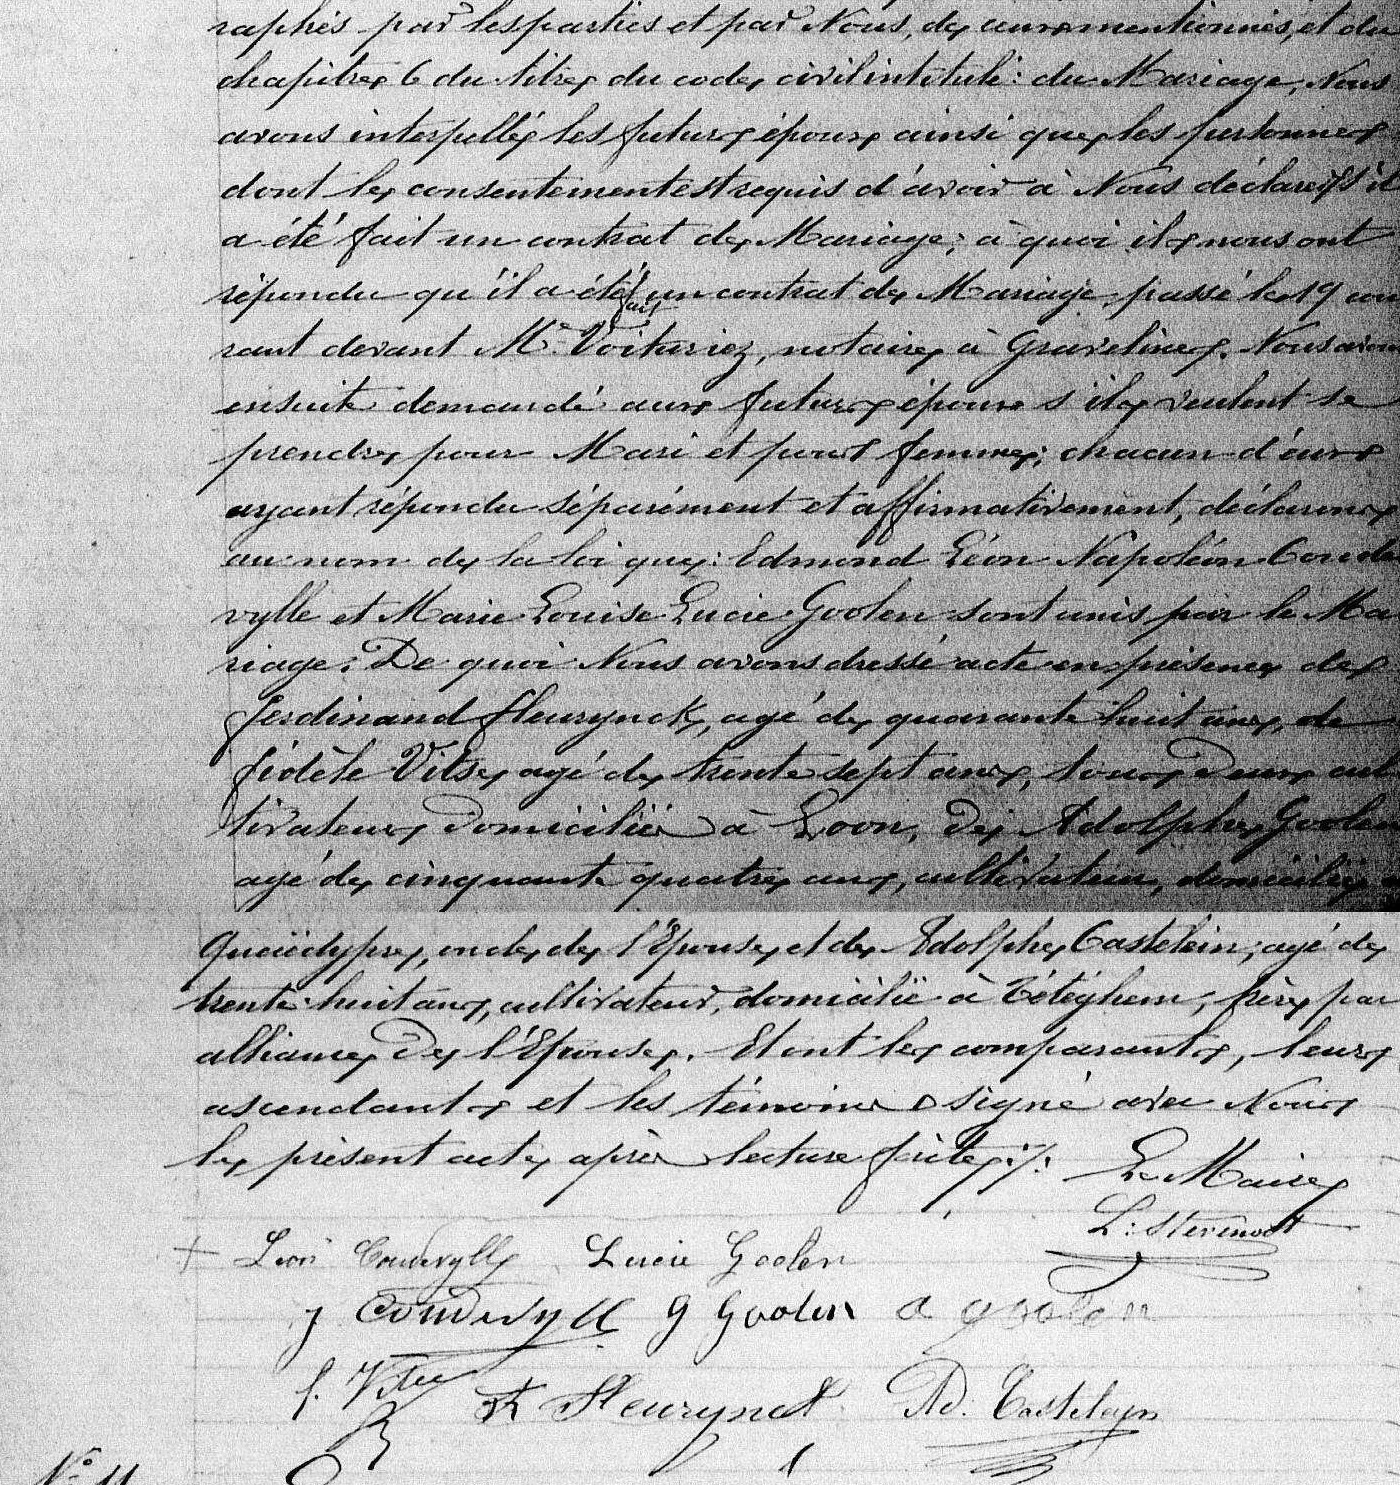 raphés par les parties et par Nous, des actes mentionnés, et du
chapitre 6 du titre du code civil intitulé: du Mariage, Nous
avons interpellé les futurs époux ainsi que les personnes
dont le consentement est requis d'avoir à Nous déclarer s'il
a été fait un contrat de Mariage; à quoi ils nous ont
répondu qu'il a été fait un contrat de Mariage passé le 19 cou
rant devant Mᵉ Voituriez, notaire à Gravelines. Nous avons
ensuite demandé aux futurs époux s'ils veulent se
prendre pour Mari et pour femme; chacun d'eux
ayant répondu séparément et affirmativement, déclarons
au nom de la loi que: Edmond Léon Napoléon Coude
vylle et Marie Louise Lucie Goolen sont unis par le Ma
riage; De quoi Nous avons dressé acte en présence de
ferdinand fleurynck, agé de quarante huit ans, de
fidèle Vitse, agé de trente sept ans, tous deux cul
tivateurs domiciliés à Loon, De Adolphe Goolen
agé de cinquante quatre ans, cultivateur, domicilié à
Quaëdypre, oncle de l'Epouse, et de Adolphe Castelein, agé de
trente huit ans, cultivateur, domicilié à Téteghem, frère par
alliance De l'Epouse. Et ont les comparants, leurs
ascendants et les témoins signé avec Nous
le présent acte après lecture faite ./.
Le Maire
L: Stevenoot
+ Léon Coudevylle Lucie Goolen
J Coudevylle G Goolen a goolen
f. Vitse ft Fleurynck Ad. Casteleyn
N° 11